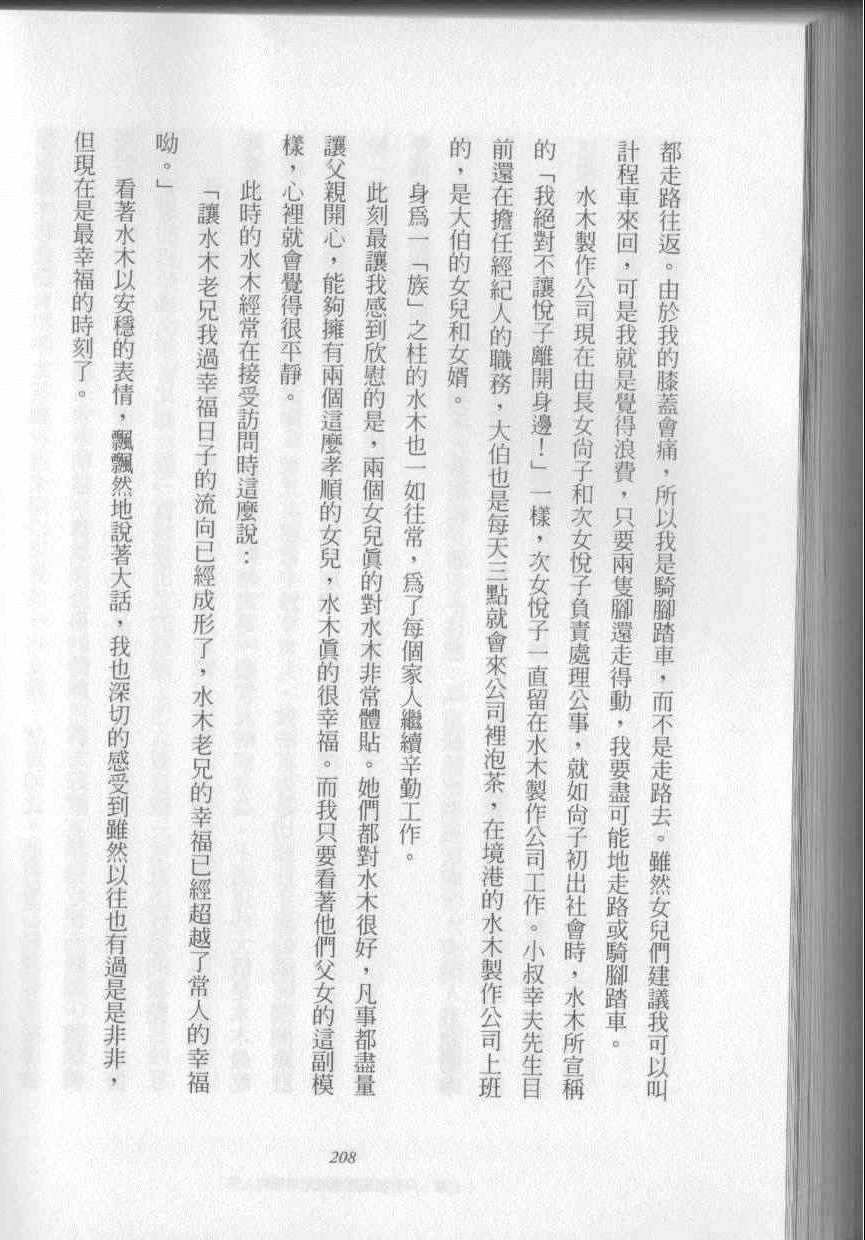 都走路往返。由於我的膝蓋會痛，所以我是騎腳踏車，而不是走路去。雖然女兒們建議我可以叫
計程車來回，可是我就是覺得浪費，只要兩隻腳還走得動，我要盡可能地走路或騎腳踏車。
水木製作公司現在由長女尚子和次女悅子負責處理公事，就如尚子初出社會時，水木所宣稱
的「我絕對不讓悅子離開身邊！」一樣，次女悅子一直留在水木製作公司工作。小叔幸夫先生目
前還在擔任經紀人的職務，大伯也是每天三點就會來公司裡泡茶，在境港的水木製作公司上班
的，是大伯的女兒和女婿。
身爲一「族」之柱的水木也一如往常，爲了每個家人繼續辛勤工作。
此刻最讓我感到欣慰的是，兩個女兒眞的對水木非常體貼。她們都對水木很好，凡事都盡量
讓父親開心，能夠擁有兩個這麼孝順的女兒，水木眞的很幸福。而我只要看著他們父女的這副模
樣，心裡就會覺得很平靜。
此時的水木經常在接受訪問時這麼說：
「讓水木老兄我過幸福日子的流向已經成形了，水木老兄的幸福已經超越了常人的幸福
呦。」
看著水木以安穩的表情，飄飄然地說著大話，我也深切的感受到雖然以往也有過是是非非，
但現在是最幸福的時刻了。
208